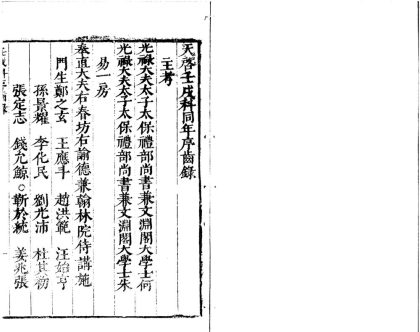 天啓壬戌科同年序齒錄
主考
光祿大夫太子太保禮部尚書兼文淵閣大學士何
光祿大夫太子太保禮部尚書兼文淵閣大學士朱
易一房
奉直大夫右春坊右諭德兼翰林院侍講施
門生鄭之玄 王應斗 趙洪範 汪始亨
孫景耀 李化民 劉光沛 杜其初
張定志 錢允鯨 靳於統 姜兆張